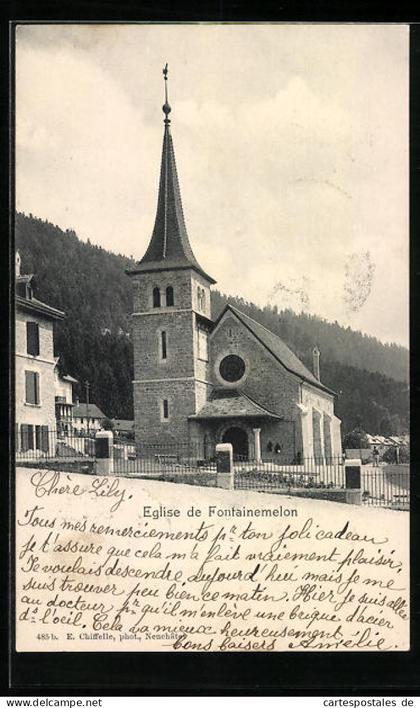 Chère Lily,
Eglise de Fontainemelon
Tous mes remerciements pr ton joli cadeau
Je t'assure que cela m'a fait vraiment plaisir.
Je voulais descendre, aujourd'hui mais je me
suis trouver peu bien ce matin. Hier je suis allée
au docteur pr qu'il m'enlève une brique d'acier
ds l'oeil. Cela va mieux heureusement
485 b. E. Chiffelle, phot., Neuchâtel
bons baisers Amélie
www.cartespostales.de
cartespostales.de